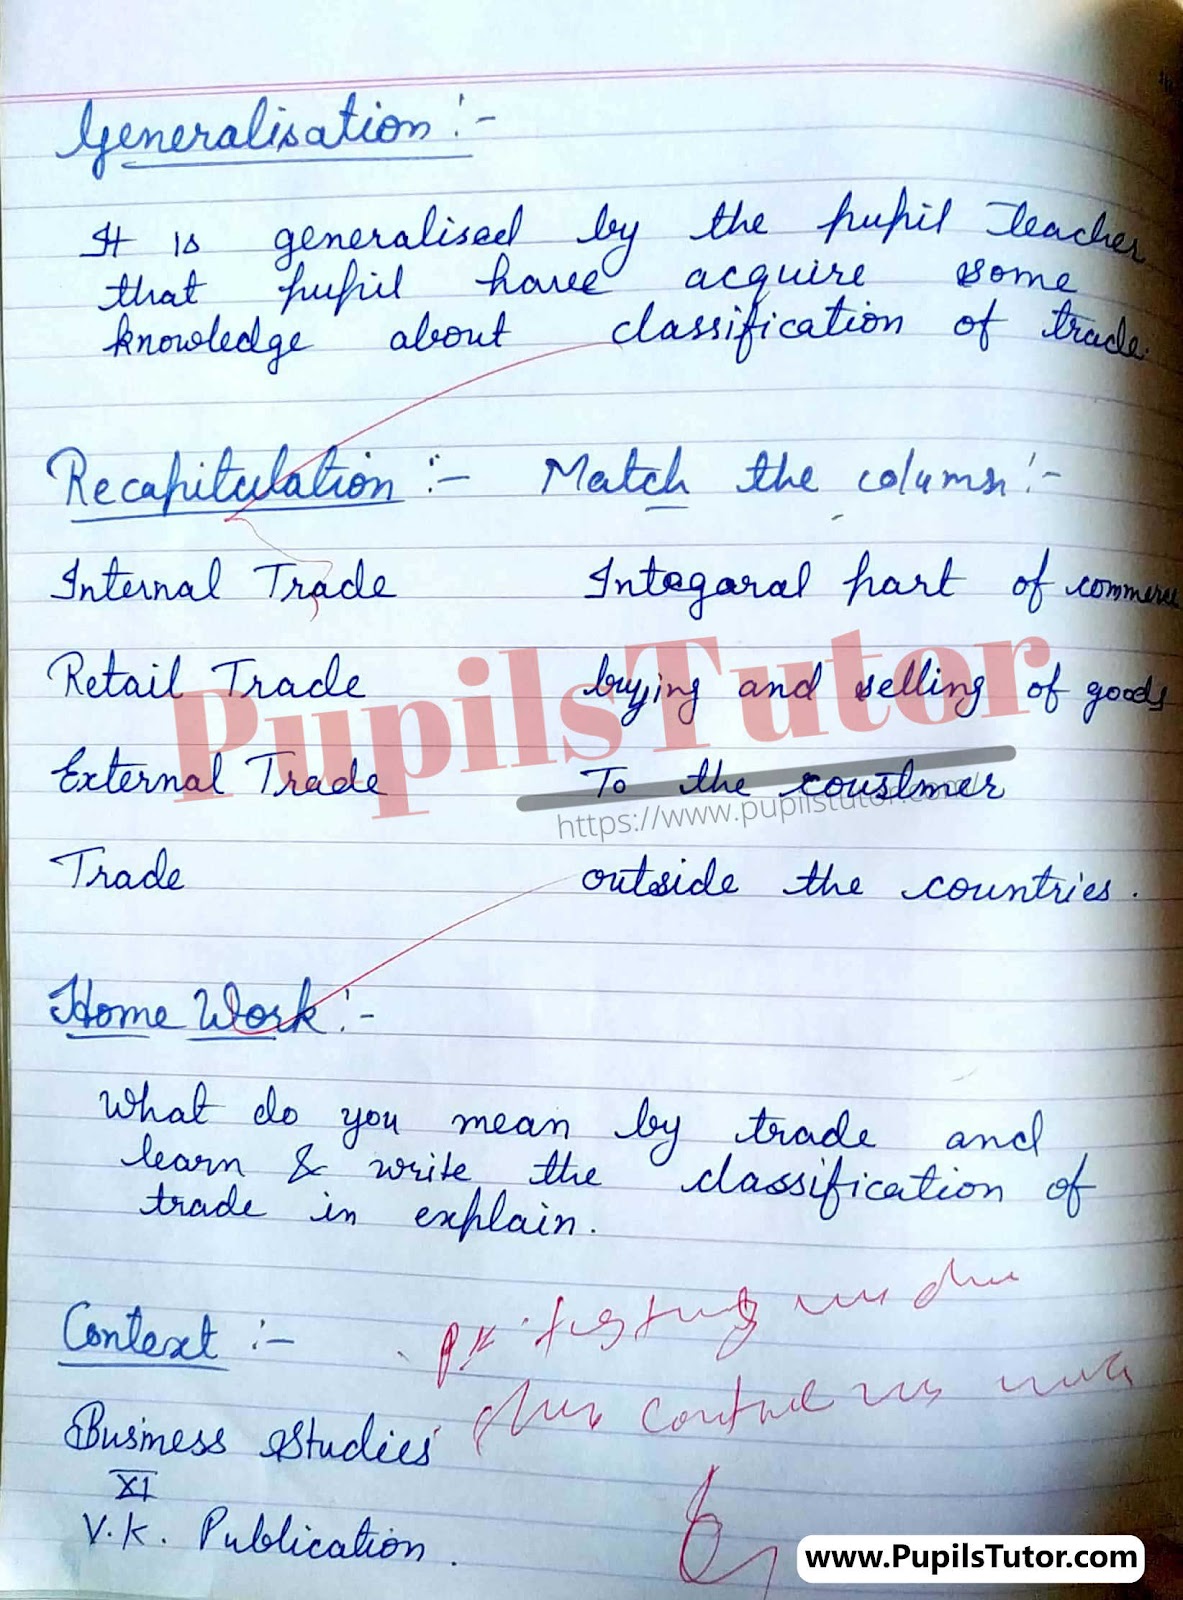 Generalisation :-
It is generalised by the pupil Teacher
that pupil have acquire some
knowledge about classification of trade.
Recapitulation :- Match the column :-
Internal Trade Integaral part of commerce
Retail Trade buying and selling of goods
External Trade To the coustmer
Trade outside the countries.
PupilsTutor
https://www.pupilstutor.com/
Home Work :-
What do you mean by trade and
learn & write the classification of
trade in explain.
Context :-
Business Studies
XI
V.K. Publication.
www.PupilsTutor.com